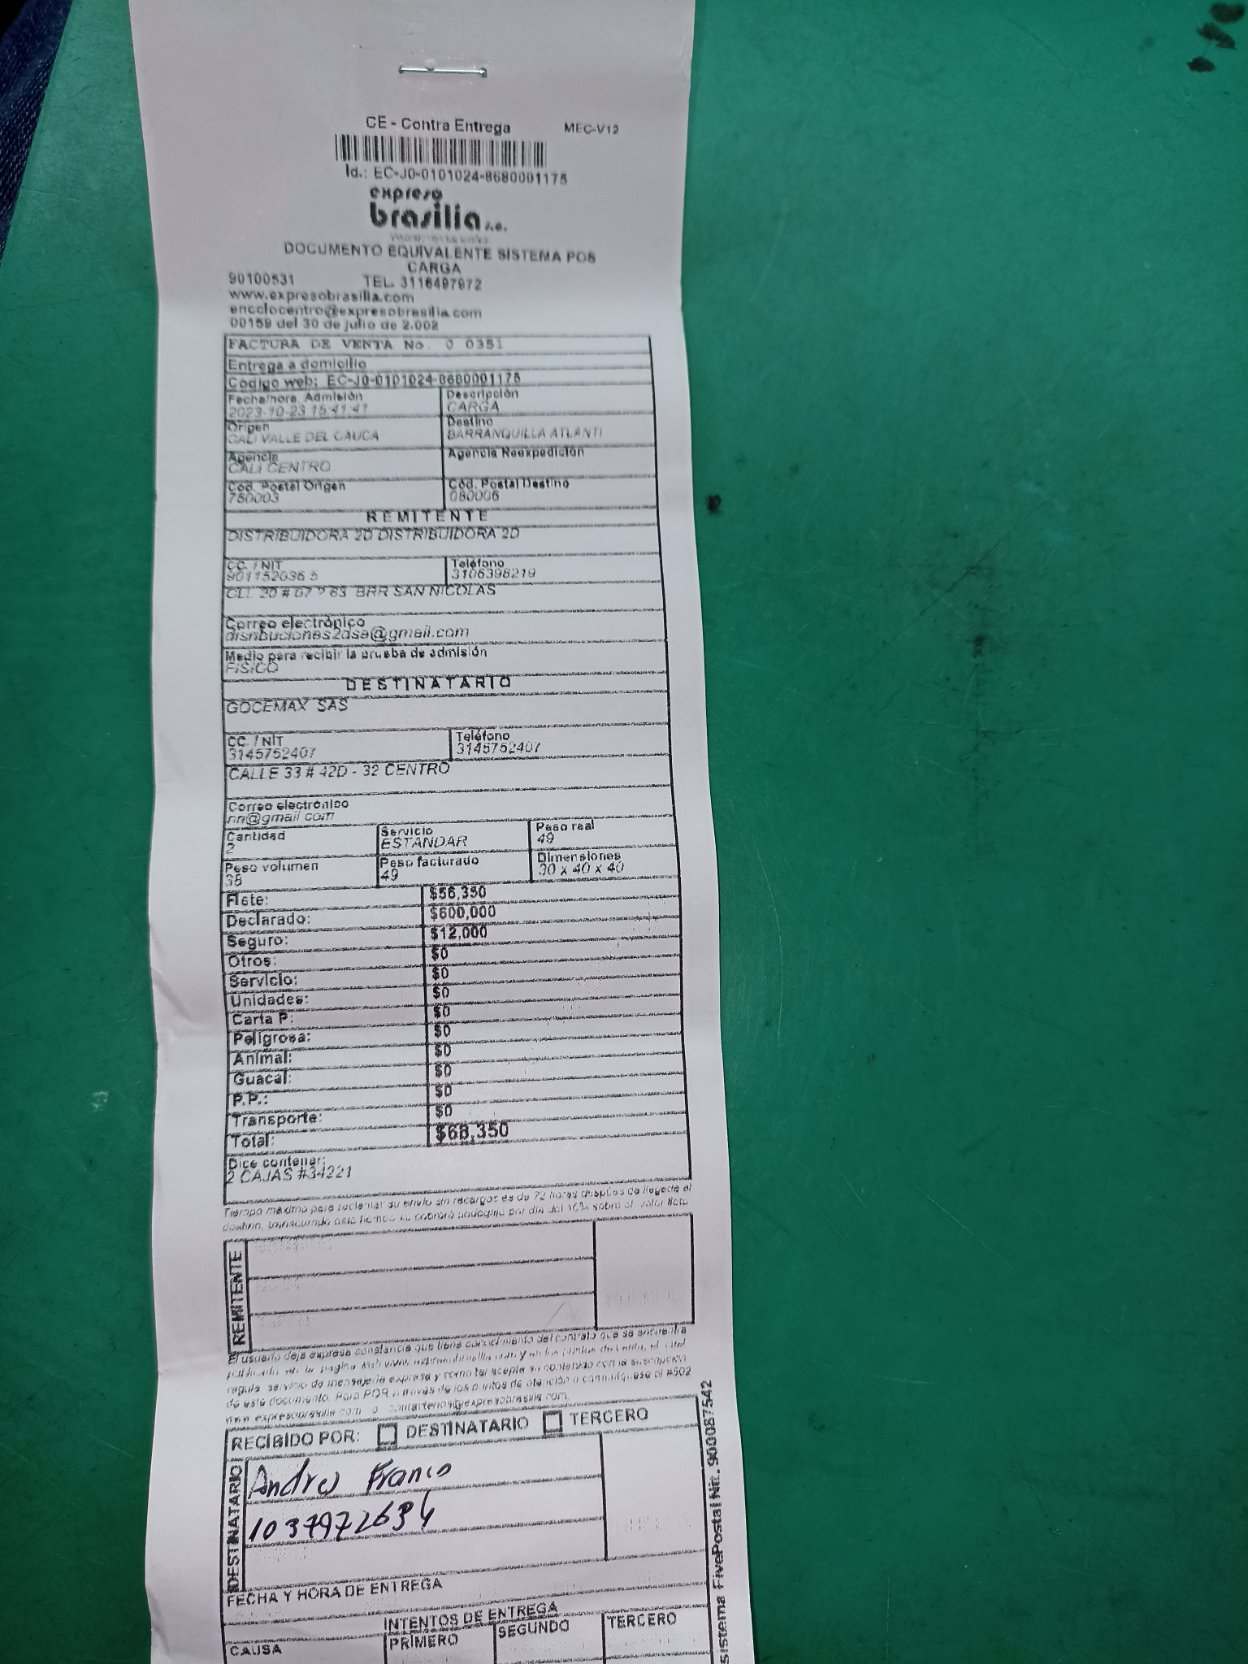 CE - Contra Entrega MEC-V12
Id.: EC-J0-0101024-8680001175
expreso
brasilia s.a.
DOCUMENTO EQUIVALENTE SISTEMA POS
CARGA
90100531 TEL. 3116497972
www.expresobrasilia.com
encclocentro@expresobrasilia.com
00159 del 30 de julio de 2.002
FACTURA DE VENTA No. 0 0351
Entrega a domicilio
Codigo web: EC-J0-0101024-8680001175
Fecha/hora. Admisión Descripción
2023-10-23 15:41:41 CARGA
Origen Destino
CALI VALLE DEL CAUCA BARRANQUILLA ATLANTI
Agencia Agencia Reexpedición
CALI CENTRO
Cód. Postal Origen Cód. Postal Destino
760003 080006
REMITENTE
DISTRIBUIDORA 2D DISTRIBUIDORA 2D
CC. / NIT Teléfono
901152036 5 3106398219
BRR SAN NICOLAS
Correo electrónico
Medio para recibir la prueba de admisión
FISICO
DESTINATARIO
GOCEMAX SAS
CC. / NIT Teléfono
3145752407 3145752407
CALLE 33 # 42D - 32 CENTRO
Correo electrónico
nn@gmail com
Cantidad Servicio Peso real
2 ESTANDAR 49
Peso volumen Peso facturado Dimensiones
38 49 30 x 40 x 40
Flete: $56,350
Declarado: $600,000
Seguro: $12,000
Otros: $0
Servicio: $0
Unidades: $0
Carta P: $0
Peligrosa: $0
Animal: $0
Guacal: $0
P.P.: $0
Transporte: $0
Total: $68,350
Dice contener:
2 CAJAS #34221
Tiempo máximo para reclamar su envío sin recargos es de 72 horas después de llegada al
destino, transcurrido este tiempo se cobrará bodegaje por día del 10% sobre el valor flete
REMITENTE
El usuario deja expresa constancia que tiene conocimiento del contrato que se encuentra
publicado en la página web www.expresobrasilia.com y en los puntos de venta, el cual
regula servicio de mensajería expresa y como tal acepta su contenido con la suscripción
de este documento. Para PQR a través de los puntos de atención o comuníquese al #502
RECIBIDO POR: DESTINATARIO TERCERO
DESTINATARIO
Andres Franco
1037972634
FECHA Y HORA DE ENTREGA
INTENTOS DE ENTREGA
CAUSA PRIMERO SEGUNDO TERCERO
sistema FivePostal Nit. 900087542